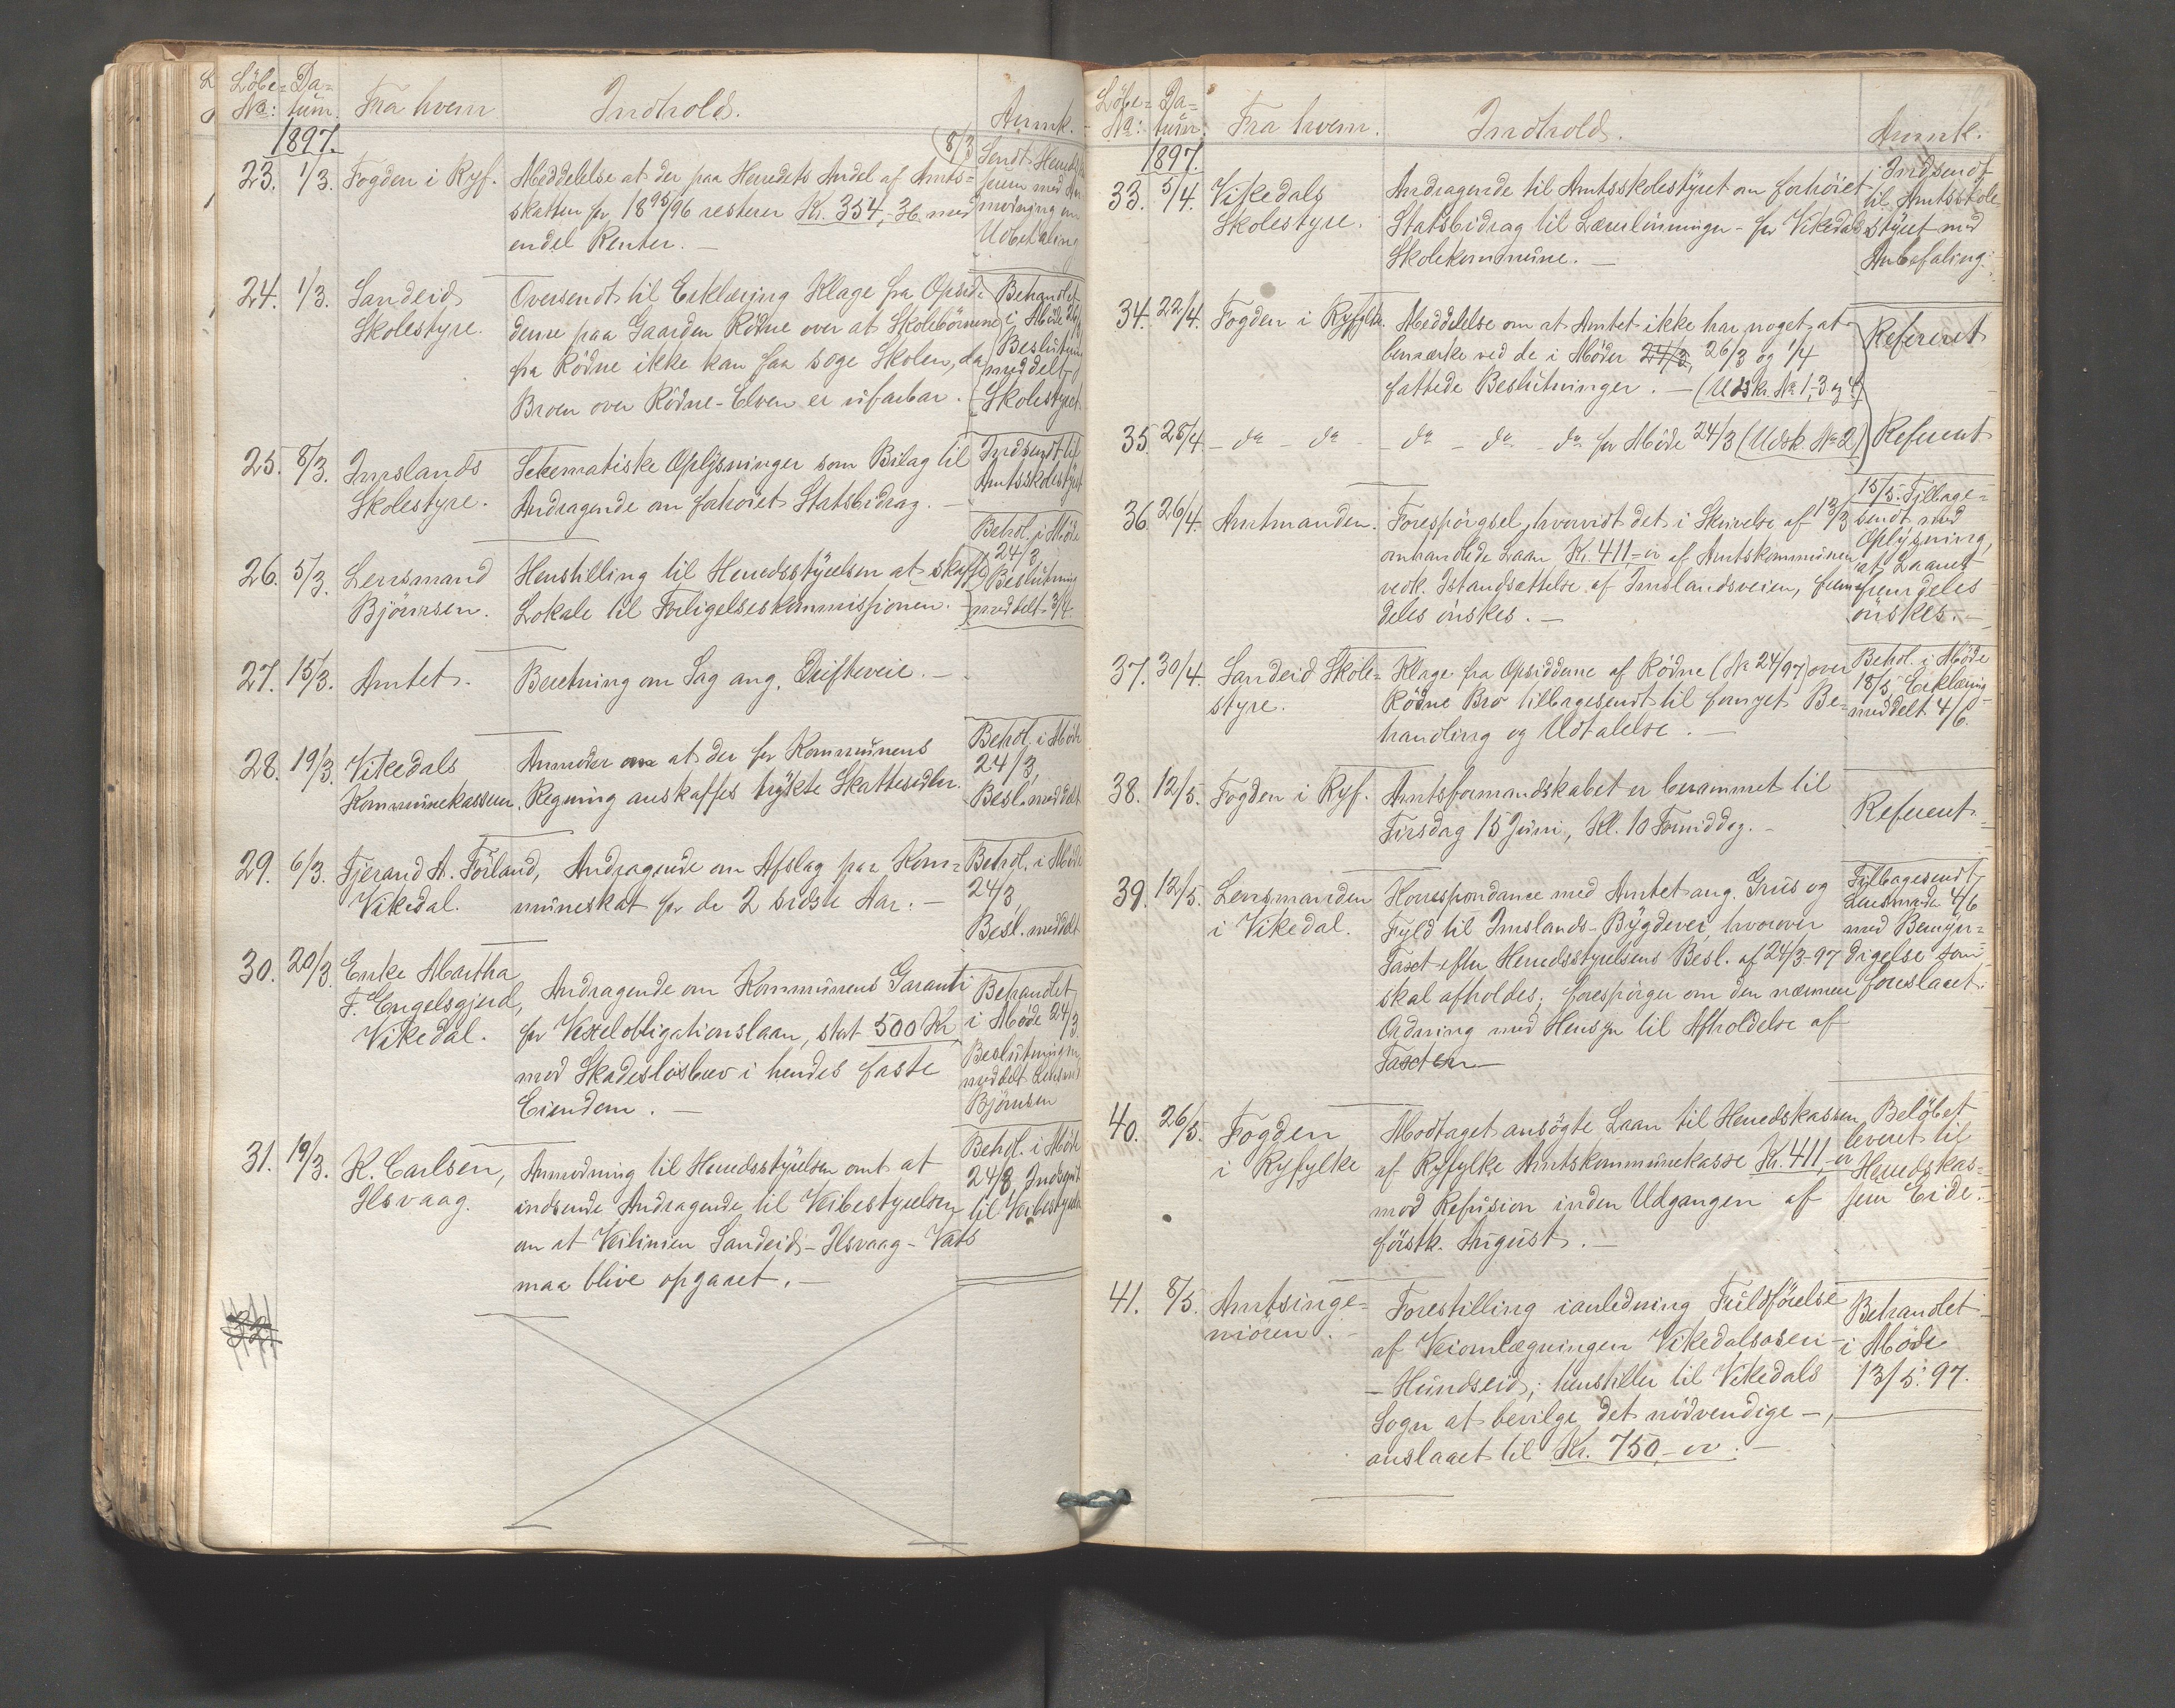 Löbe- Da-
No: tum. Fra hvem Indhold. Anmk.
1897.
23. 1/3. Fogden i Ryf. Meddelelse at der paa Herredets Andel af Amts- (8/3 Sendt Herreds-
skatten for 1895/96 resterer Kr. 354,36 med
endel Renter. — Udbetaling
24. 1/3. Sandeid Oversendt til Erklæring Klage fra Opsid- Behandlet
Skolestyre. derne paa Gaarden Rödne over at Skolebörnene i Möde 26/3
fra Rödne ikke kan faa söge Skolen, da Beslutning
Broen over Rödne-Elven er ufarbar. meddelt
Skolestyret
25. 8/3. Imslands Schematiske Oplysninger som Bilag til Indsendt til
Skolestyre. Andragende om forhöiet Statsbidrag. — Amtsskolestyret
26. 5/3. Lensmand Henstilling til Herredsstyrelsen at skaffe Behdl. i Möde
Björnsen. Lokale til Forligelseskommissionen. — 24/3
Beslutning
meddelt 3/4.
27. 15/3. Amtet. Beretning om Sag ang. Drifteveie. —
28. 19/3. Vikedals Anmoder om at der for Kommunens Behdl. i Möde
Kommunekasserer. Regning anskaffes trykte Skattesedler. 24/3,
Besl. meddelt
29. 6/3. Tjerand A. Förland, Andragende om Afslag paa Kom- Behdl. i Möde
Vikedal. muneskat for de 2 sidste Aar. — 24/3,
Besl. meddelt
30. 20/3. Enke Martha
F. Engelsgjerd, Andragende om Kommunens Garanti Behandlet
Vikedal. for Vexelobligationslaan, stort 500 Kr. i Möde 24/3.
med Skadeslösbrev i hendes faste Beslutningen
Eiendom. — meddelt Lensmd
Björnsen
31. 19/3. K. Carlsen, Anmodning til Herredsstyrelsen omt at Behdl. i Möde
Ilsvaag. indsende Andragende til Veibestyrelsen 24/3, Indsendt
om at Veilinien Sandeid-Ilsvaag-Vats til Veibestyrelsen
maa blive opgaaet. —
32.
Löbe- Da-
No: tum. Fra hvem. Indhold. Anmk.
1897.
33. 5/4. Vikedals Andragende til Amtsskolestyret om forhöiet Indsendt
Skolestyre. Statsbidrag til Lærerlönninger for Vikedals til Amtsskole-
Skolekommune. — styret med
Anbefaling.
34. 22/4. Fogden i Ryfylke. Meddelelse om at Amtet ikke har noget at Refereret
bemærke ved de i Möder 24/3, 26/3 og 1/4
fattede Beslutninger. — (Udskr. No 1, 3 og 4)
35. 28/4 — do — do — do — do — do for Möde 24/3 (Udsk. No 2) Referert
36. 26/4. Amtmanden. Forespörgsel, hvorvidt det i Skrivelse af 13/3 15/5. Tilbage-
omhandlede Laan Kr. 411,- af Amtskommunen sendt med
vedk. Istandsættelse af Imslandsveien, frem- Oplysning,
deles önskes. — at Laanet
fremdeles
önskes. —
37. 30/4. Sandeid Skole- Klage fra Opsidderne af Rödne (No 24/97) over Behdl. i Möde
styre. Rödne Bro tilbagesendt til fornyet Be- 18/5 Erklæring
handling og Udtalelse. — meddelt 4/6.
38. 12/5. Fogden i Ryf. Amtsformandskabet er berammet til
Tirsdag 15 Juni, Kl. 10 Formiddag. — Referert.
39. 12/5. Lensmanden Korrespondance med Amtet ang. Grus og Tilbagesendt
i Vikedal. Fyld til Imslands-Bygdevei, hvorover Lensmanden 4/6
Taxt efter Herredsstyrelsens Besl. af 24/3-97 med Bemyn-
skal afholdes; forespörger om den nærmere digelse som
Ordning med Hensyn til Afholdelse af foreslaaet.
Taxten —
40. 26/5. Fogden Modtaget ansögte Laan til Herredskassen Belöbet
i Ryfylke af Ryfylke Amtskommunekasse Kr. 411,- leveret til
mod Refusion inden Udgangen af Herredskas-
förstk. August. — serer Eide.
41. 8/5. Amtsinge- Forestilling ianledning Fuldförelse Behandlet
niören. — af Veiomlægningen Vikedalsosen- i Möde
- Hundseid; henstiller til Vikedals 13/5.97.
Sogn at bevilge det nödvendige —,
anslaaet til Kr. 750,- —